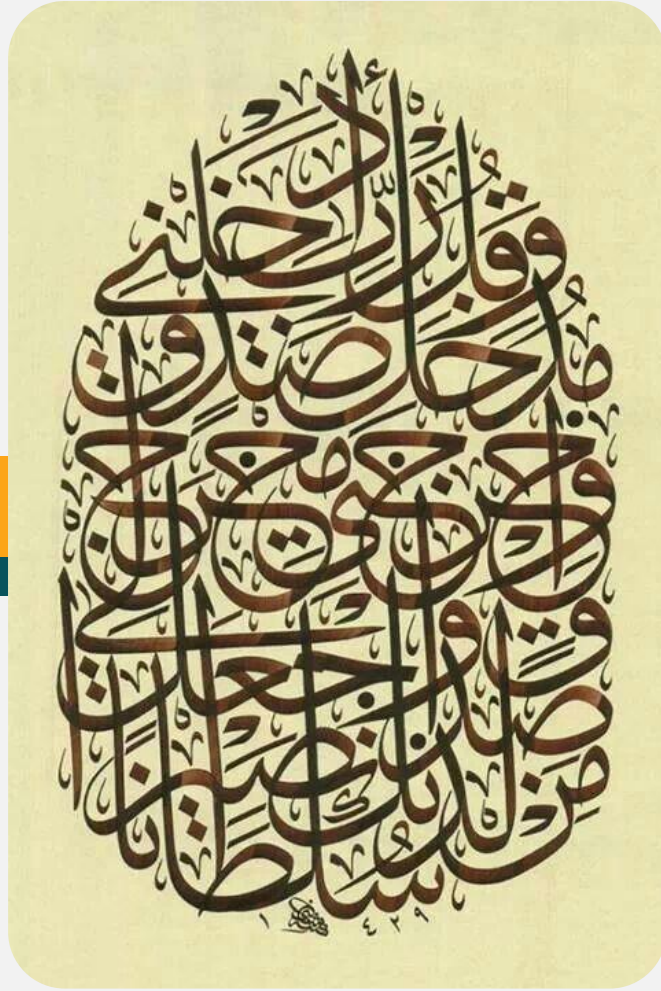 وَقُل رَّبِّ أَدْخِلْنِي
مُدْخَلَ صِدْقٍ
وَأَخْرِجْنِي مُخْرَجَ
صِدْقٍ وَاجْعَل لِّي
مِن لَّدُنكَ
سُلْطَانًا نَّصِيرًا
١٤٢٩